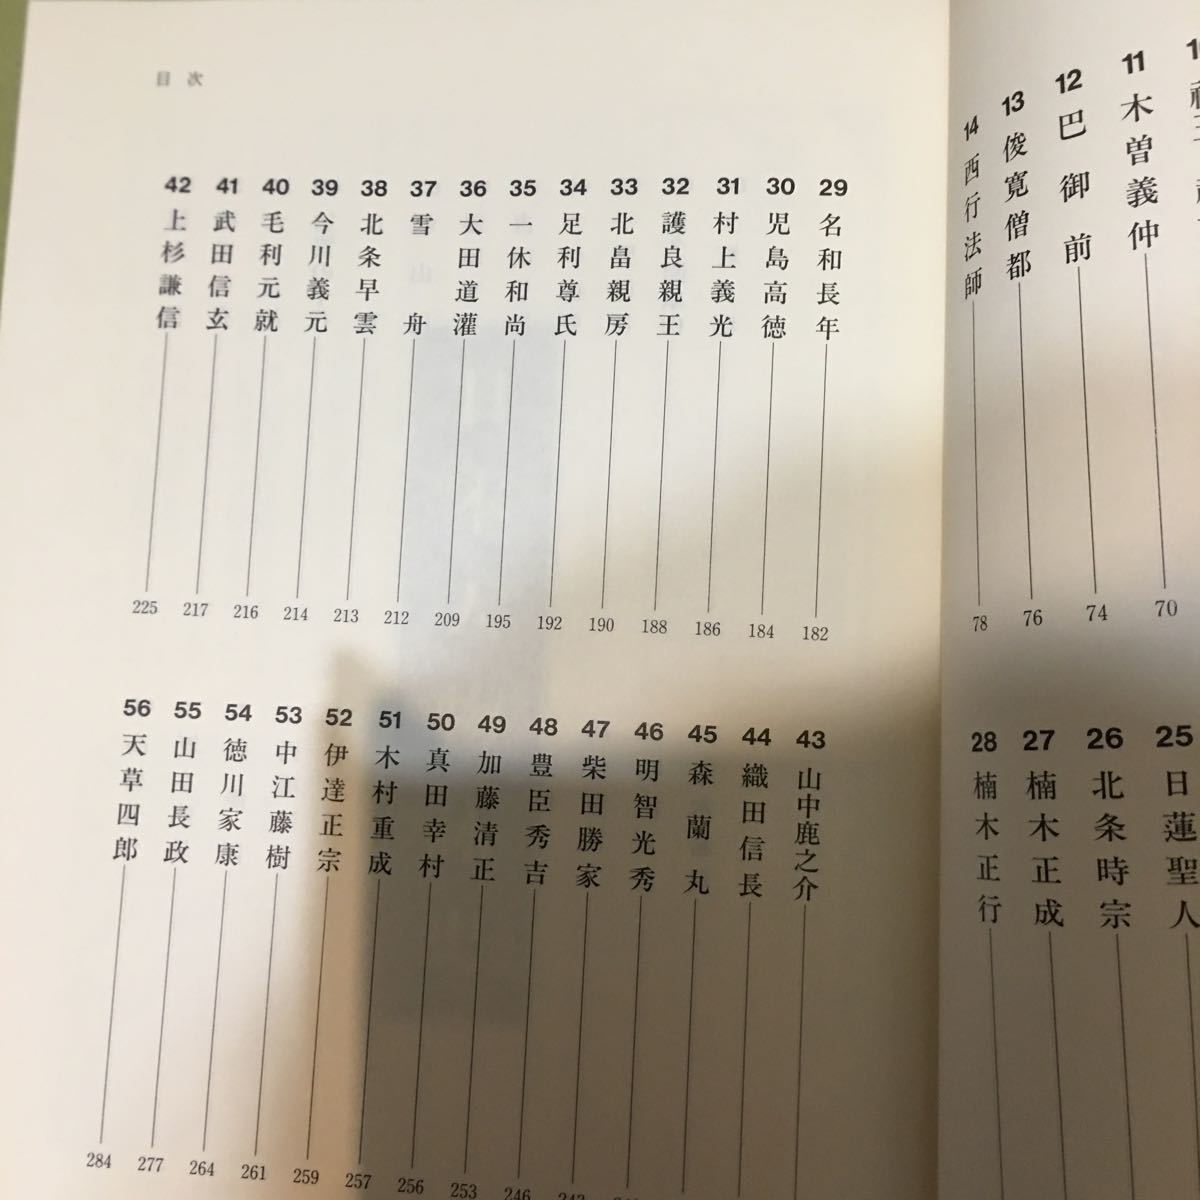 11 木曽義仲 70
12 巴御前 74
13 俊寛僧都 76
14 西行法師 78
25 日蓮聖人
26 北条時宗
27 楠木正成
28 楠木正行
目次
29 名和長年 182
30 児島高徳 184
31 村上義光 186
32 護良親王 188
33 北畠親房 190
34 足利尊氏 192
35 一休和尚 195
36 大田道灌 209
37 雪舟 212
38 北条早雲 213
39 今川義元 214
40 毛利元就 216
41 武田信玄 217
42 上杉謙信 225
43 山中鹿之介
44 織田信長
45 森蘭丸
46 明智光秀
47 柴田勝家
48 豊臣秀吉 246
49 加藤清正 253
50 真田幸村 256
51 木村重成 257
52 伊達正宗 259
53 中江藤樹 261
54 徳川家康 264
55 山田長政 277
56 天草四郎 284